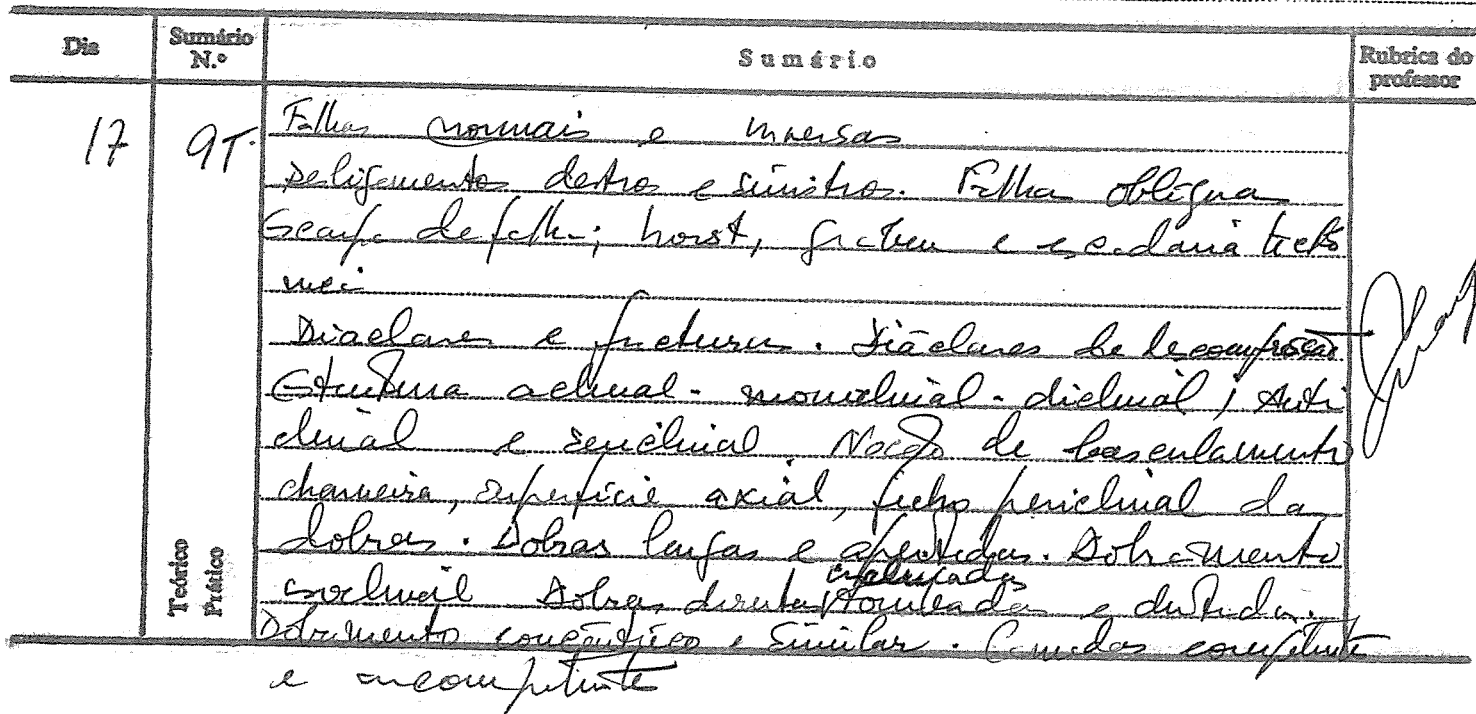 Dia
Sumário N.º
Sumário
Rubrica do professor
17
9T.
Falhas normais e inversas
Desligamentos destros e sinistros. Falha oblíqua
Escarpa de falha; horst, graben e escadaria tectó
nica
Diaclases e fracturas. Diáclases de descompressão
Estrutura aclinal - monoclinal - diclinal; Anti
clinal e sinclinal. Noção de basculamento
charneira, superfície axial, fecho periclinal da
dobras. Dobras largas e apertadas. Dobramento
isoclinal Dobras direitas, inclinadas tombadas e deitadas.
Dobramento concêntrico e similar. Camadas competente
e incompetente
Teórico
Prático